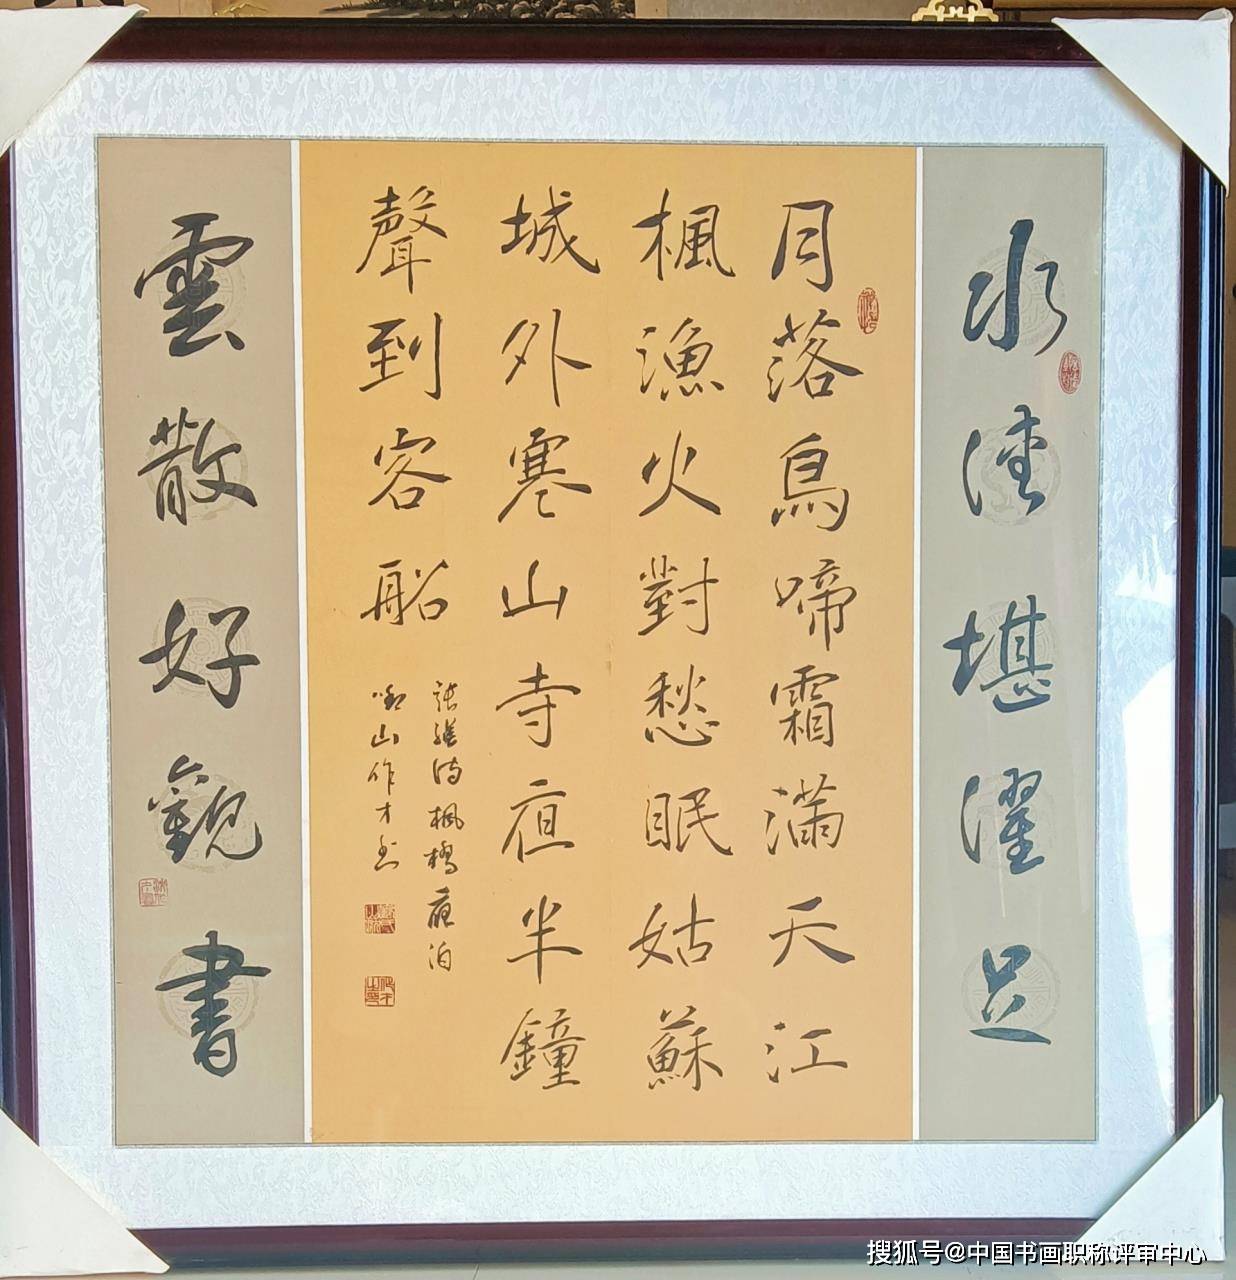 水清堪濯足
月落鳥啼霜滿天江
楓漁火對愁眠姑蘇
城外寒山寺夜半鐘
聲到客船
張繼詩楓橋夜泊
山作才書
雲散好觀書
搜狐号@中国书画职称评审中心